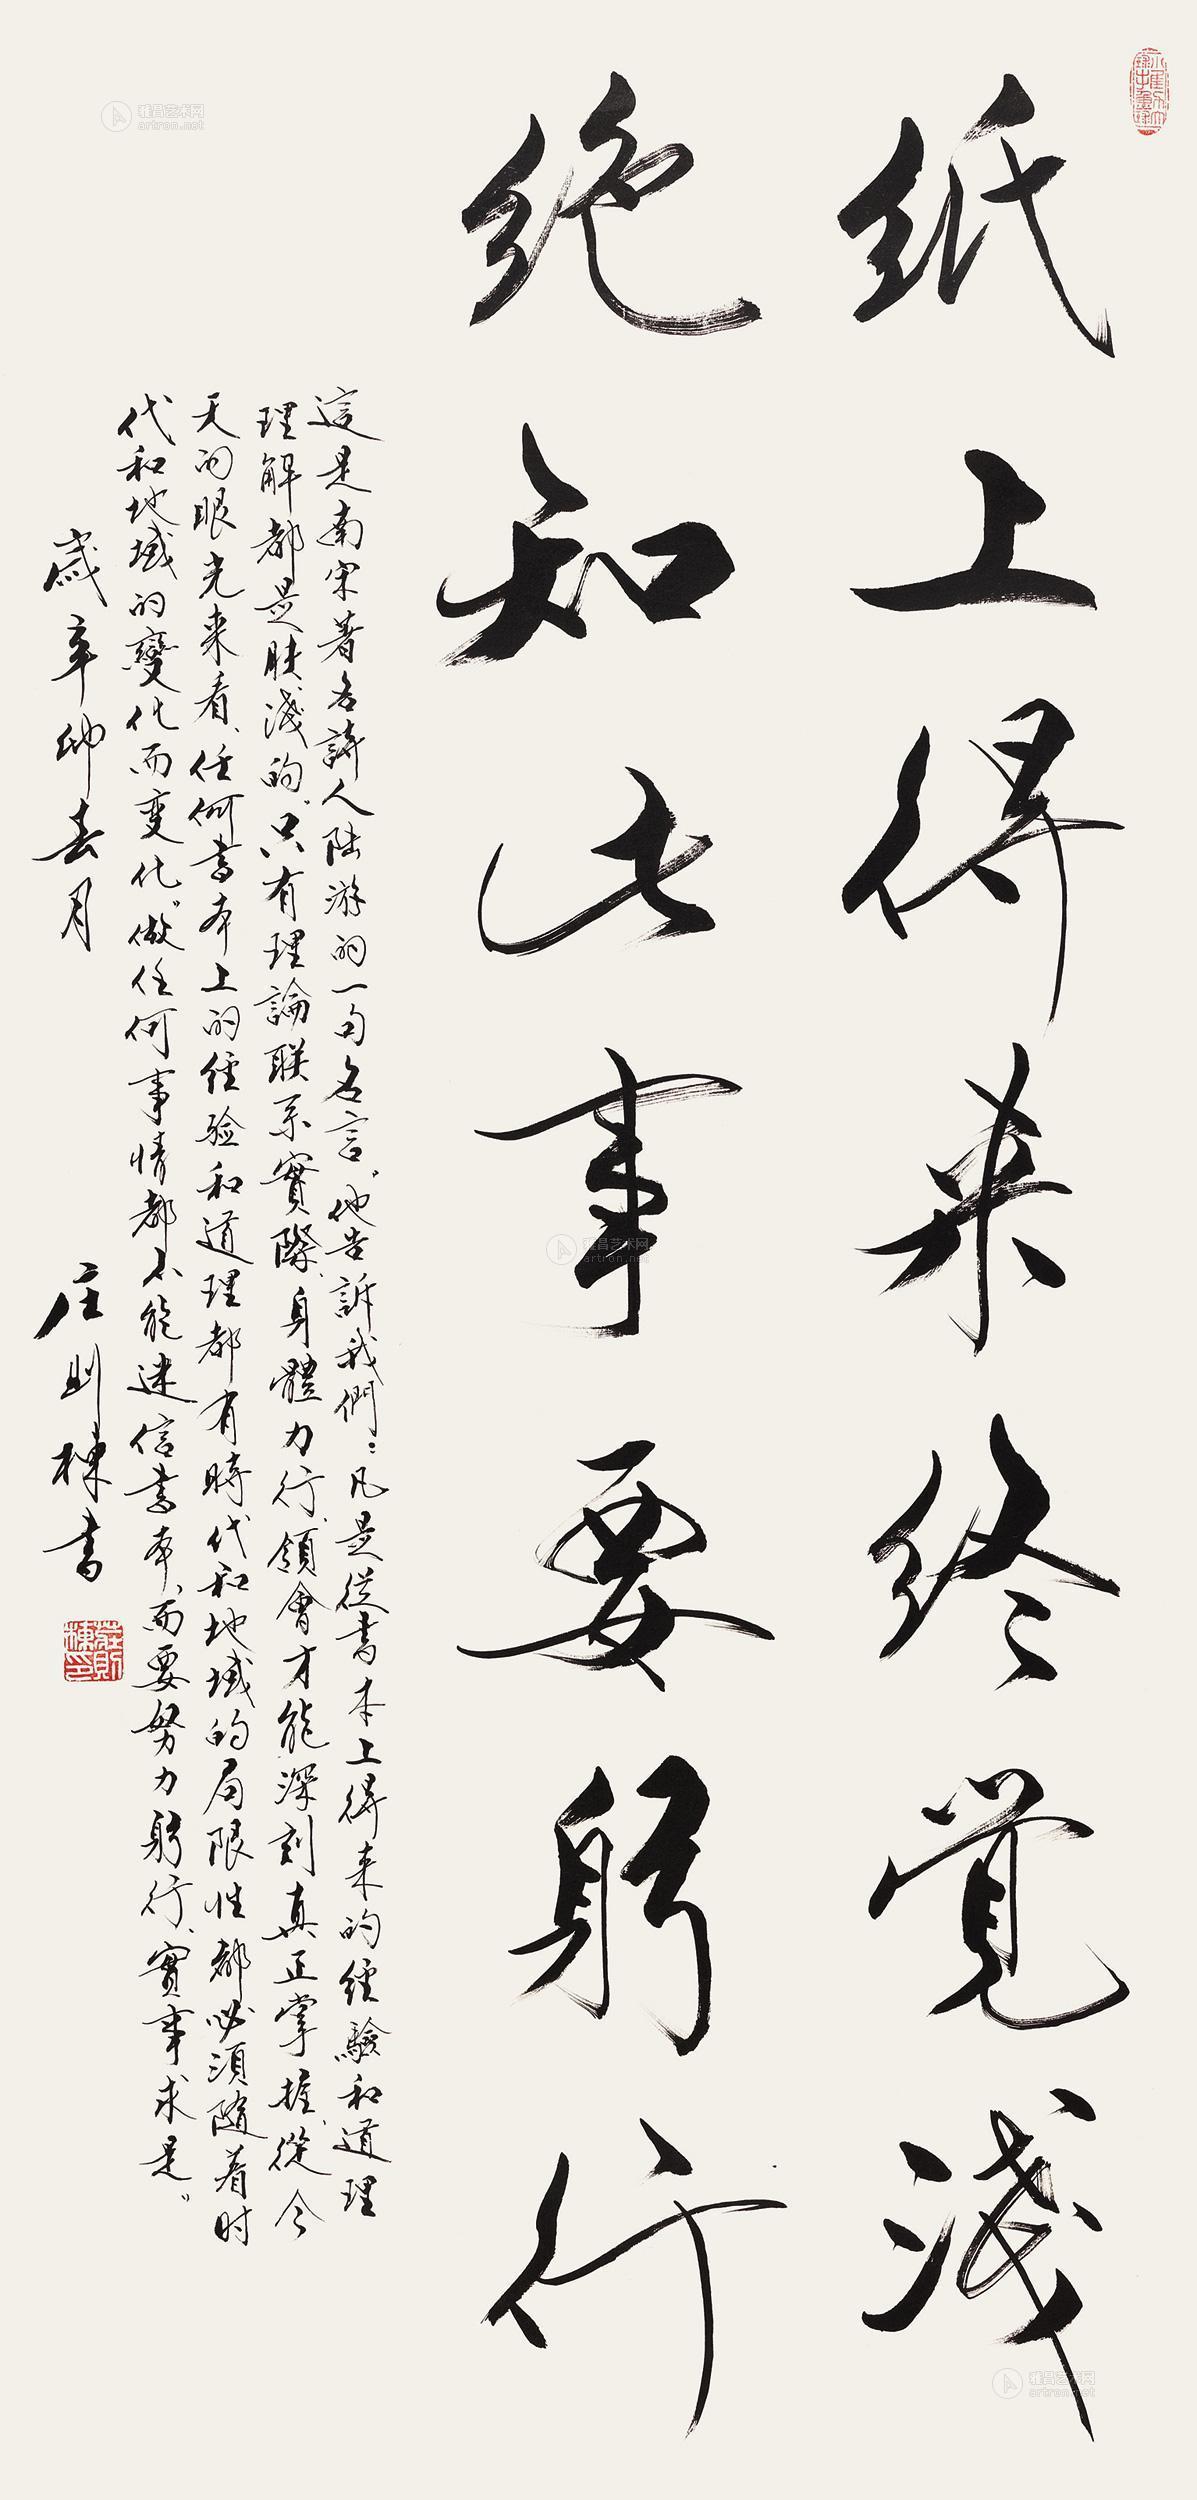 纸上得来终觉淺
绝知此事要躬行
這是南宋著名詩人陆游的一句名言。他告訴我們：凡是從書本上得来的經驗和道理
理解都是肤淺的。只有理論联系實際、身體力行、領會才能深刻真正掌握。從今
天的眼光来看、任何書本上的经验和道理都有時代和地域的局限性都必須隨着时
代和地域的變化而变化。做任何事情都不能迷信書本、而要努力躬行、實事求是。
歲辛卯春月
庄则棟书
莊則棟印
雅昌艺术网
artron.net
雅昌艺术网
artron.net
雅昌艺术网
artron.net